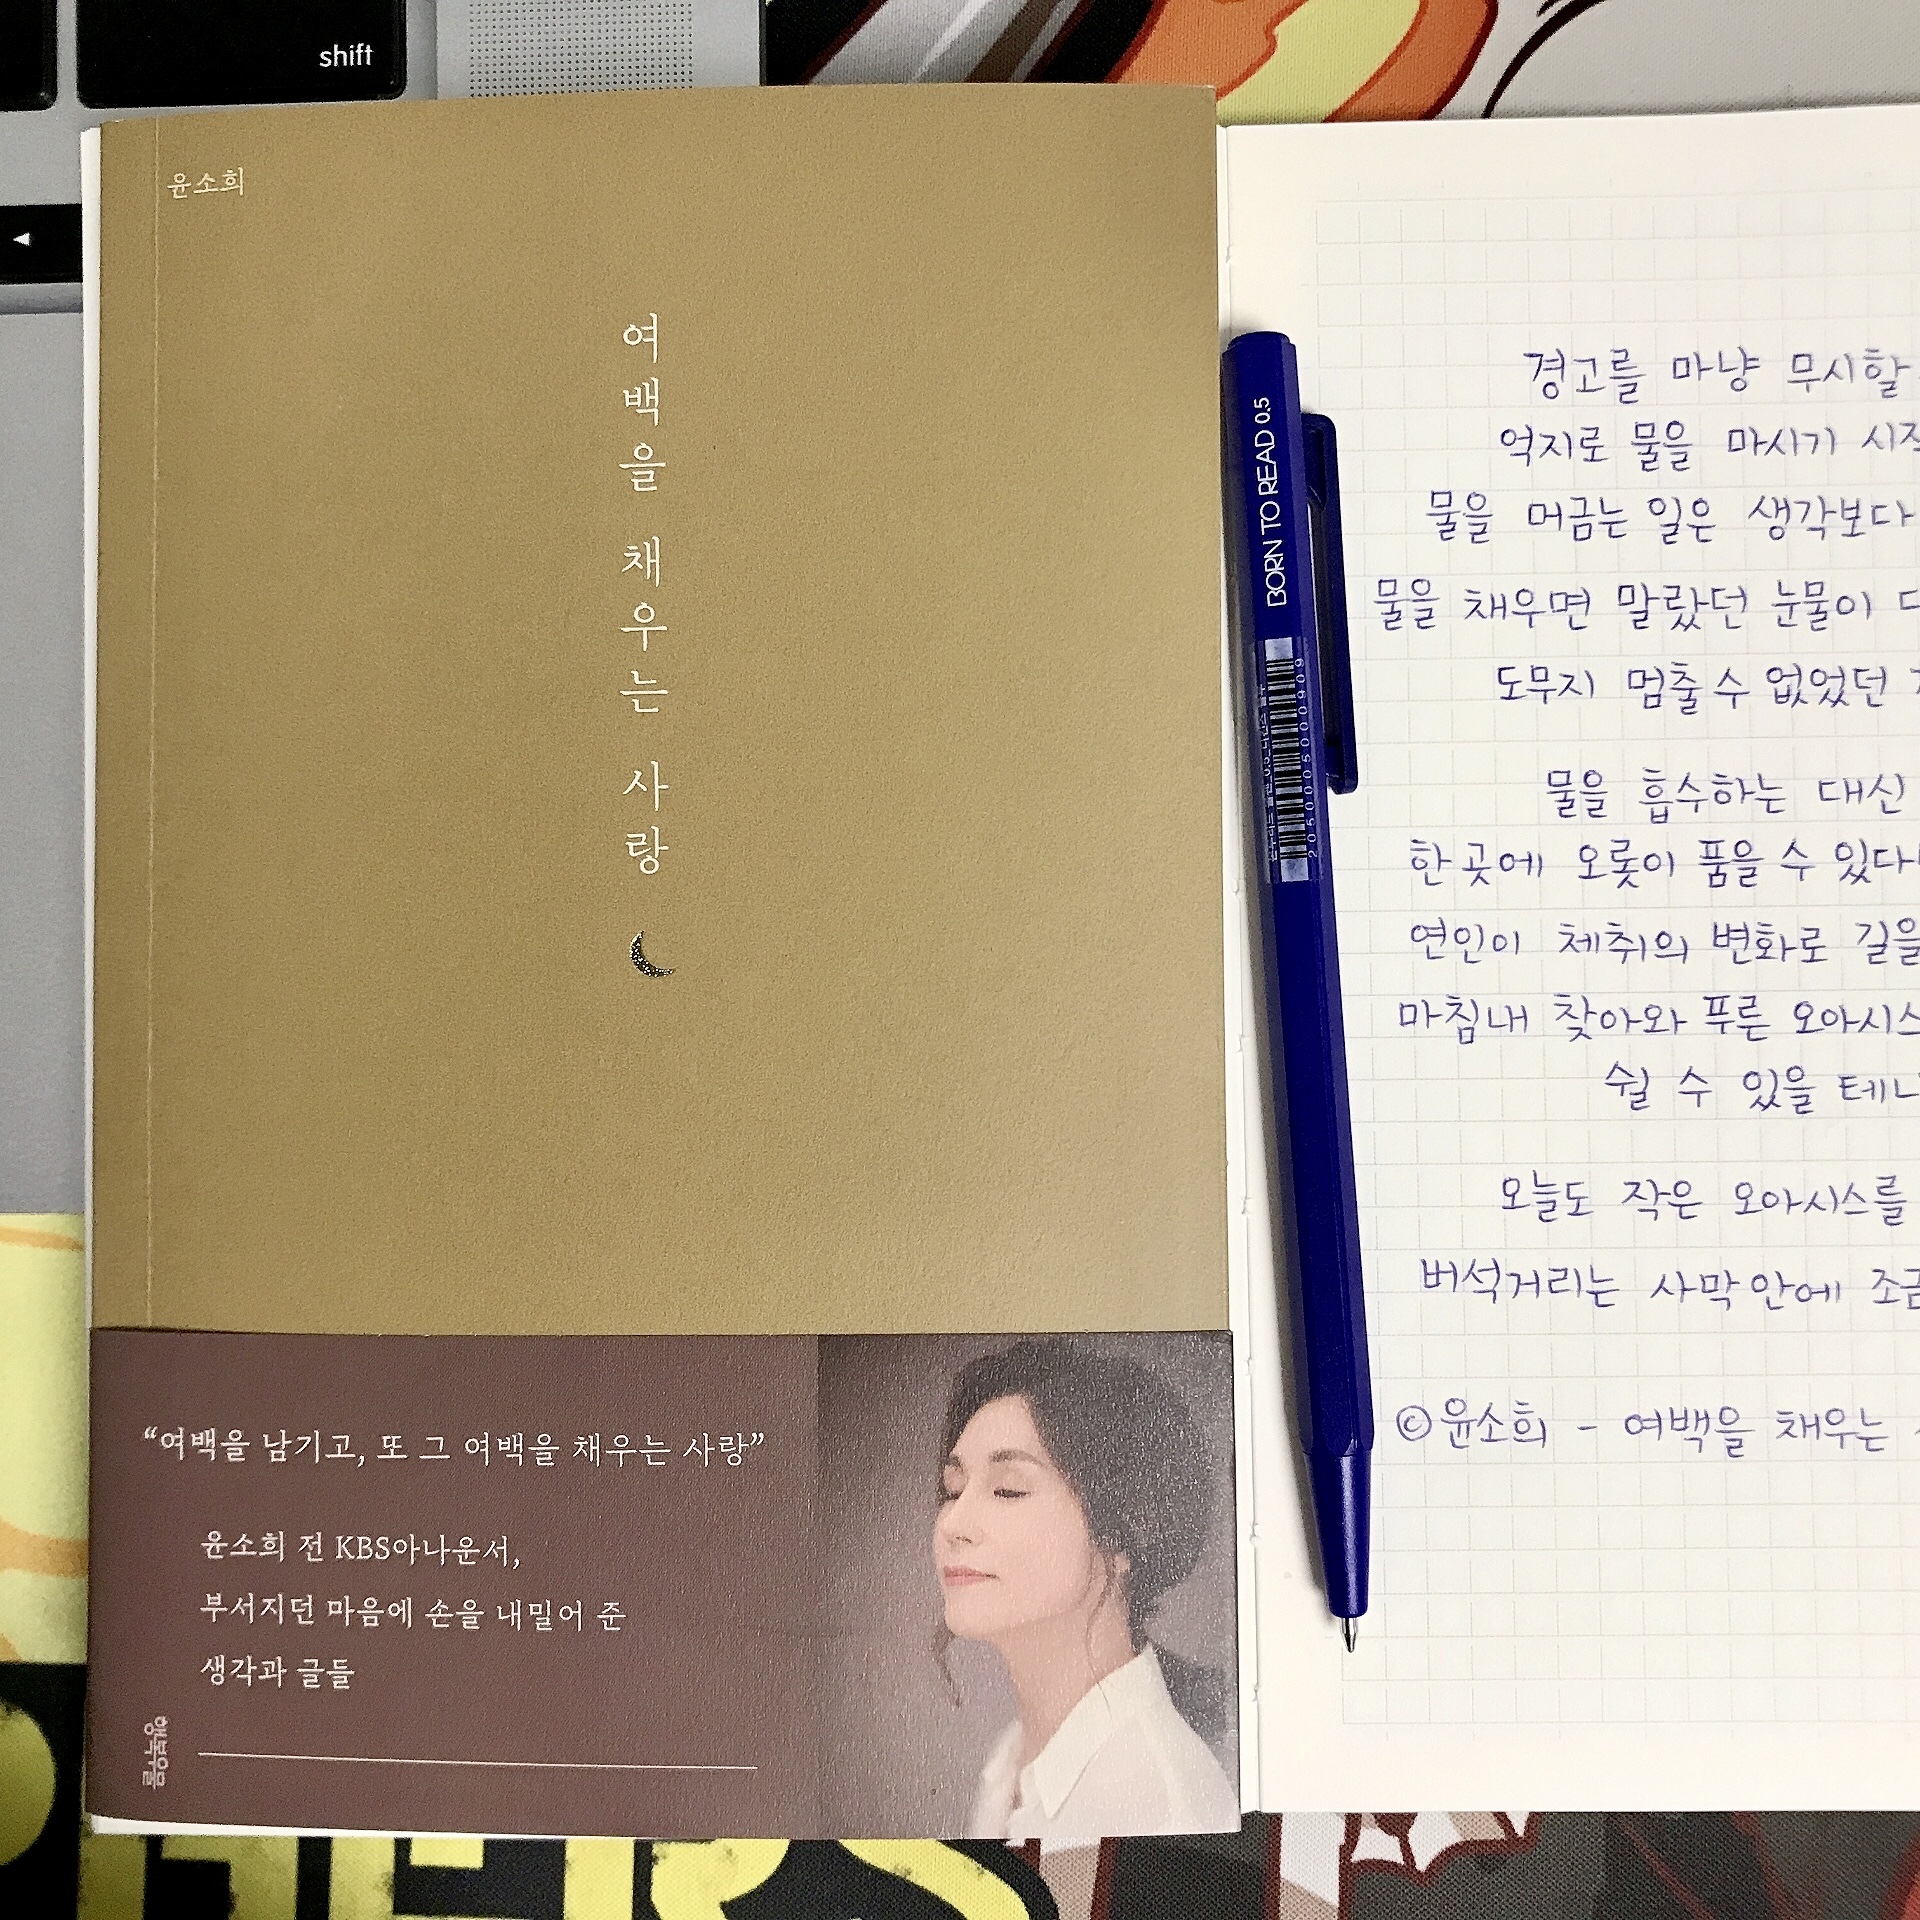 shift
윤소희
여백을 채우는 사랑
“여백을 남기고, 또 그 여백을 채우는 사랑”
윤소희 전 KBS아나운서,
부서지던 마음에 손을 내밀어 준
생각과 글들
행복우물
BORN TO READ 0.5
2050005000909
경고를 마냥 무시할
억지로 물을 마시기
물을 머금는 일은 생각보다
물을 채우면 말랐던 눈물이
도무지 멈출 수 없었던
물을 흡수하는 대신
한 곳에 오롯이 품을 수
연인이 체취의 변화로 길을
마침내 찾아와 푸른
쉴 수 있을
오늘도 작은 오아시스를
버석거리는 사막 안에
©윤소희 - 여백을 채우는